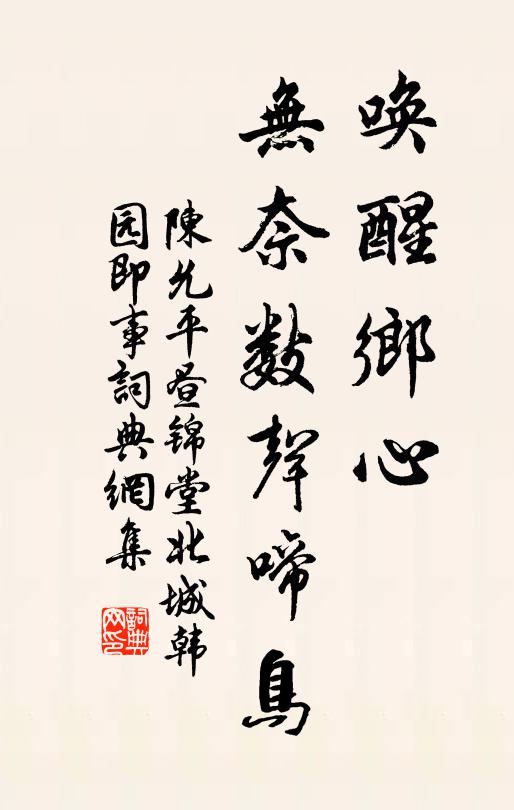 唤醒鄉心
無奈數聲啼鳥
陳允平晝锦堂北城韩
园即事詞典網集
詞典
网印